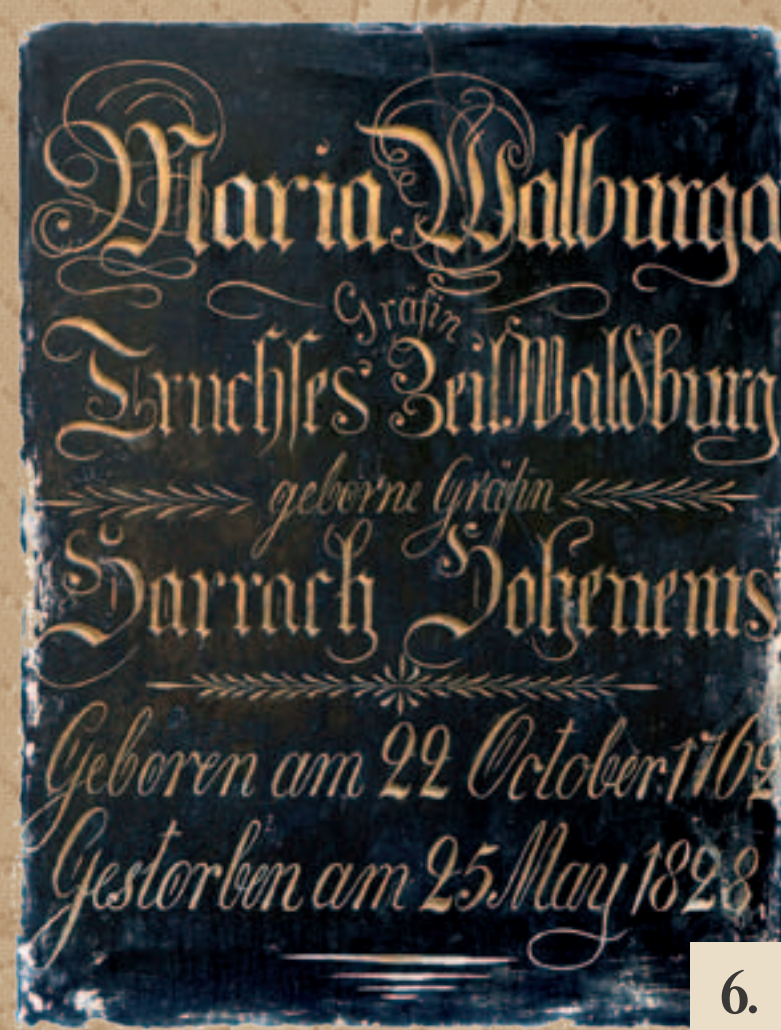 Maria Walburga
Gräfin
Truchses Zeil Waldburg
geborne Gräfin
Harrach Hohenems
Geboren am 22 October 1762
Gestorben am 25 May 1828.
6.